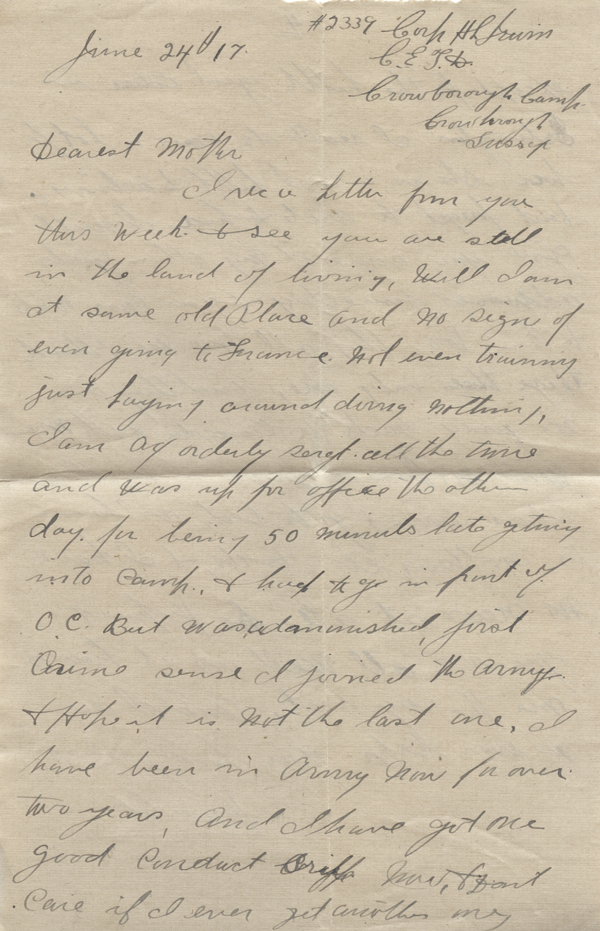 #2339 Corp H L Irwin
June 24th 17.
C. E. T. D.
Crowborough Camp.
Crowbrough
Sussex
Dearest Mother
I rec a letter from you
this week & see you are still
in the land of living, Will I am
at same old Place and no sign of
even going to France. Not even training
just laying around doing nothing,
I am orderly sergt. all the time
and was up for office the other
day for being 50 minuts late getting
into Camp, & had to go in front of
O.C. But was admonished, first
Crime sense I joined the army.
& Hope it is not the last one, I
have been in Army Now for over
two years, And I have got one
good Conduct Now, & Dont
Care if I ever get another my